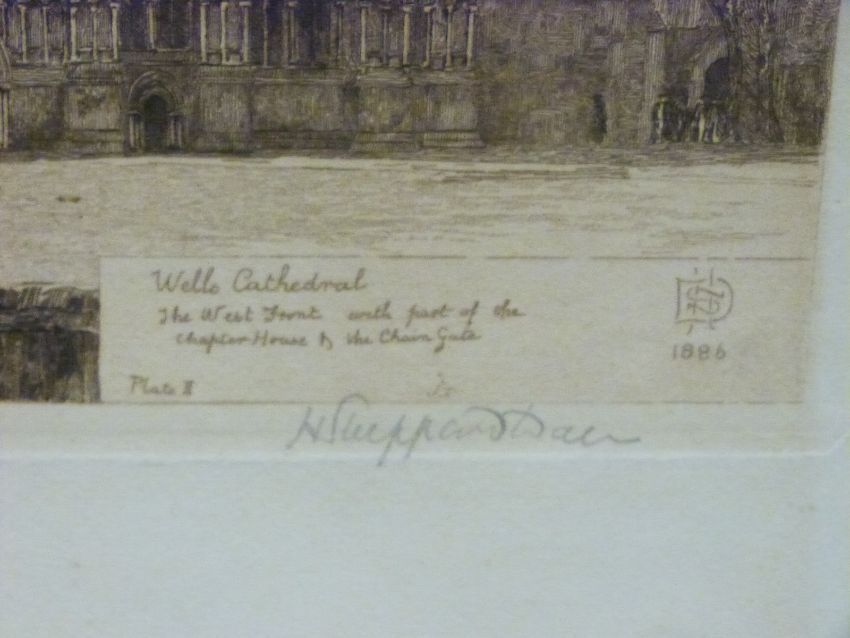 Wells Cathedral
The West Front with part of the
Chapter House & the Chain Gate
Plate II
1886
H Sheppard Dale